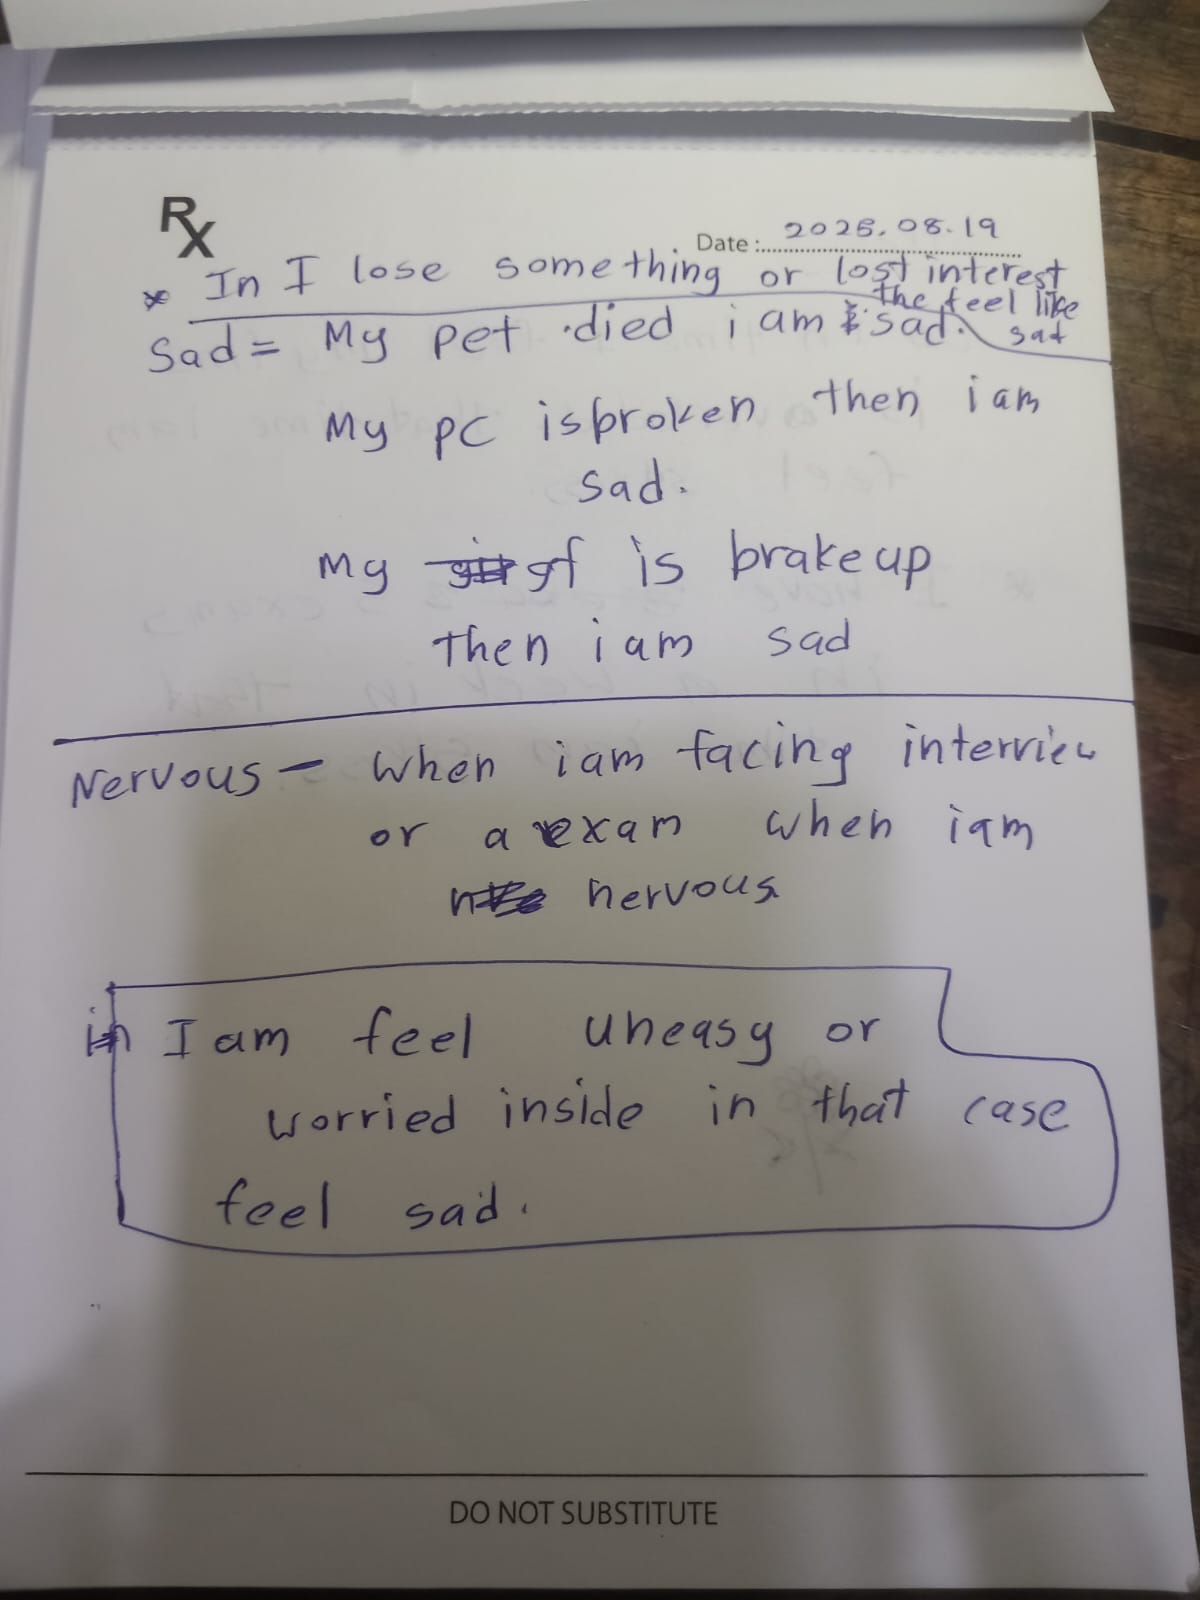 Rx
Date :.......... 2025.08.19
* In I lose something or lost interest
the feel like
sad
Sad = My pet died i am sad.
My pc is broken then i am
sad.
My gf is brake up
then i am sad
Nervous - When i am facing interview
or a exam when i am
nervous
I am feel uneasy or
worried inside in that case
feel sad.
DO NOT SUBSTITUTE